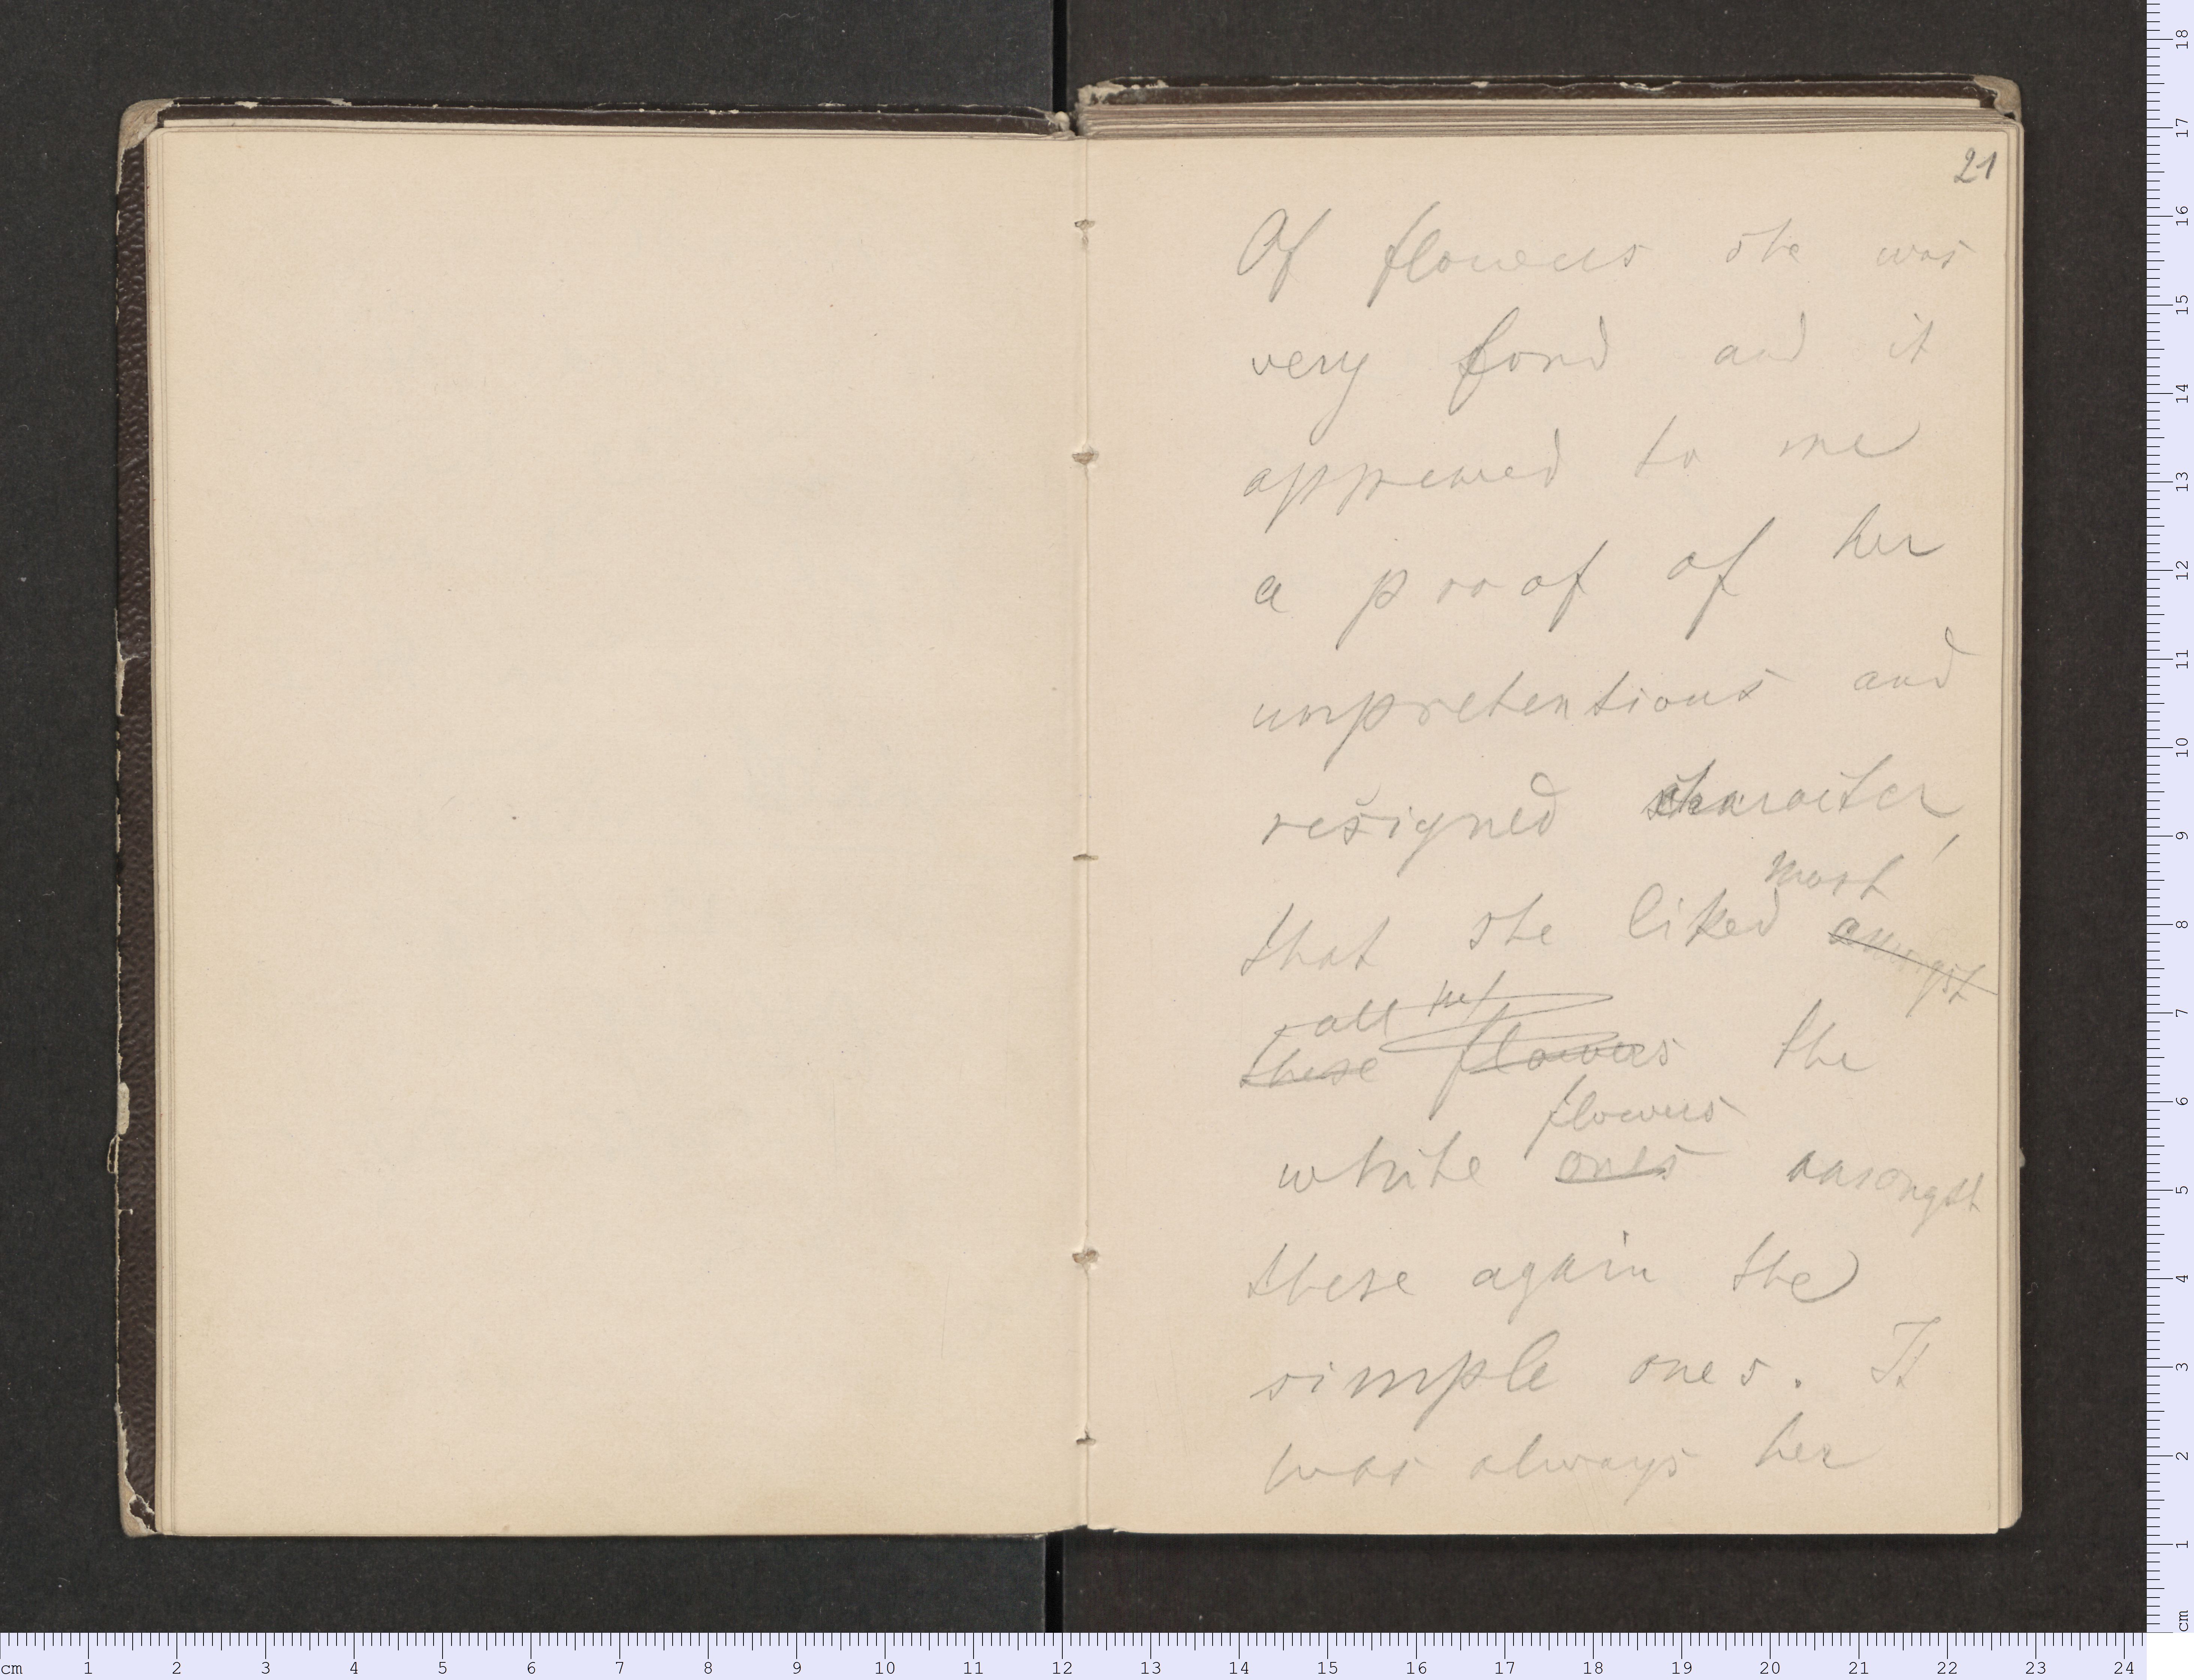 21
Of flowers she was
very fond and it
appeared to me
a proof of her
unpretentious and
resigned character,
most
that she liked amongst
all
these flowers the
flowers
white ones amongst
these again the
simple ones. It
was always her